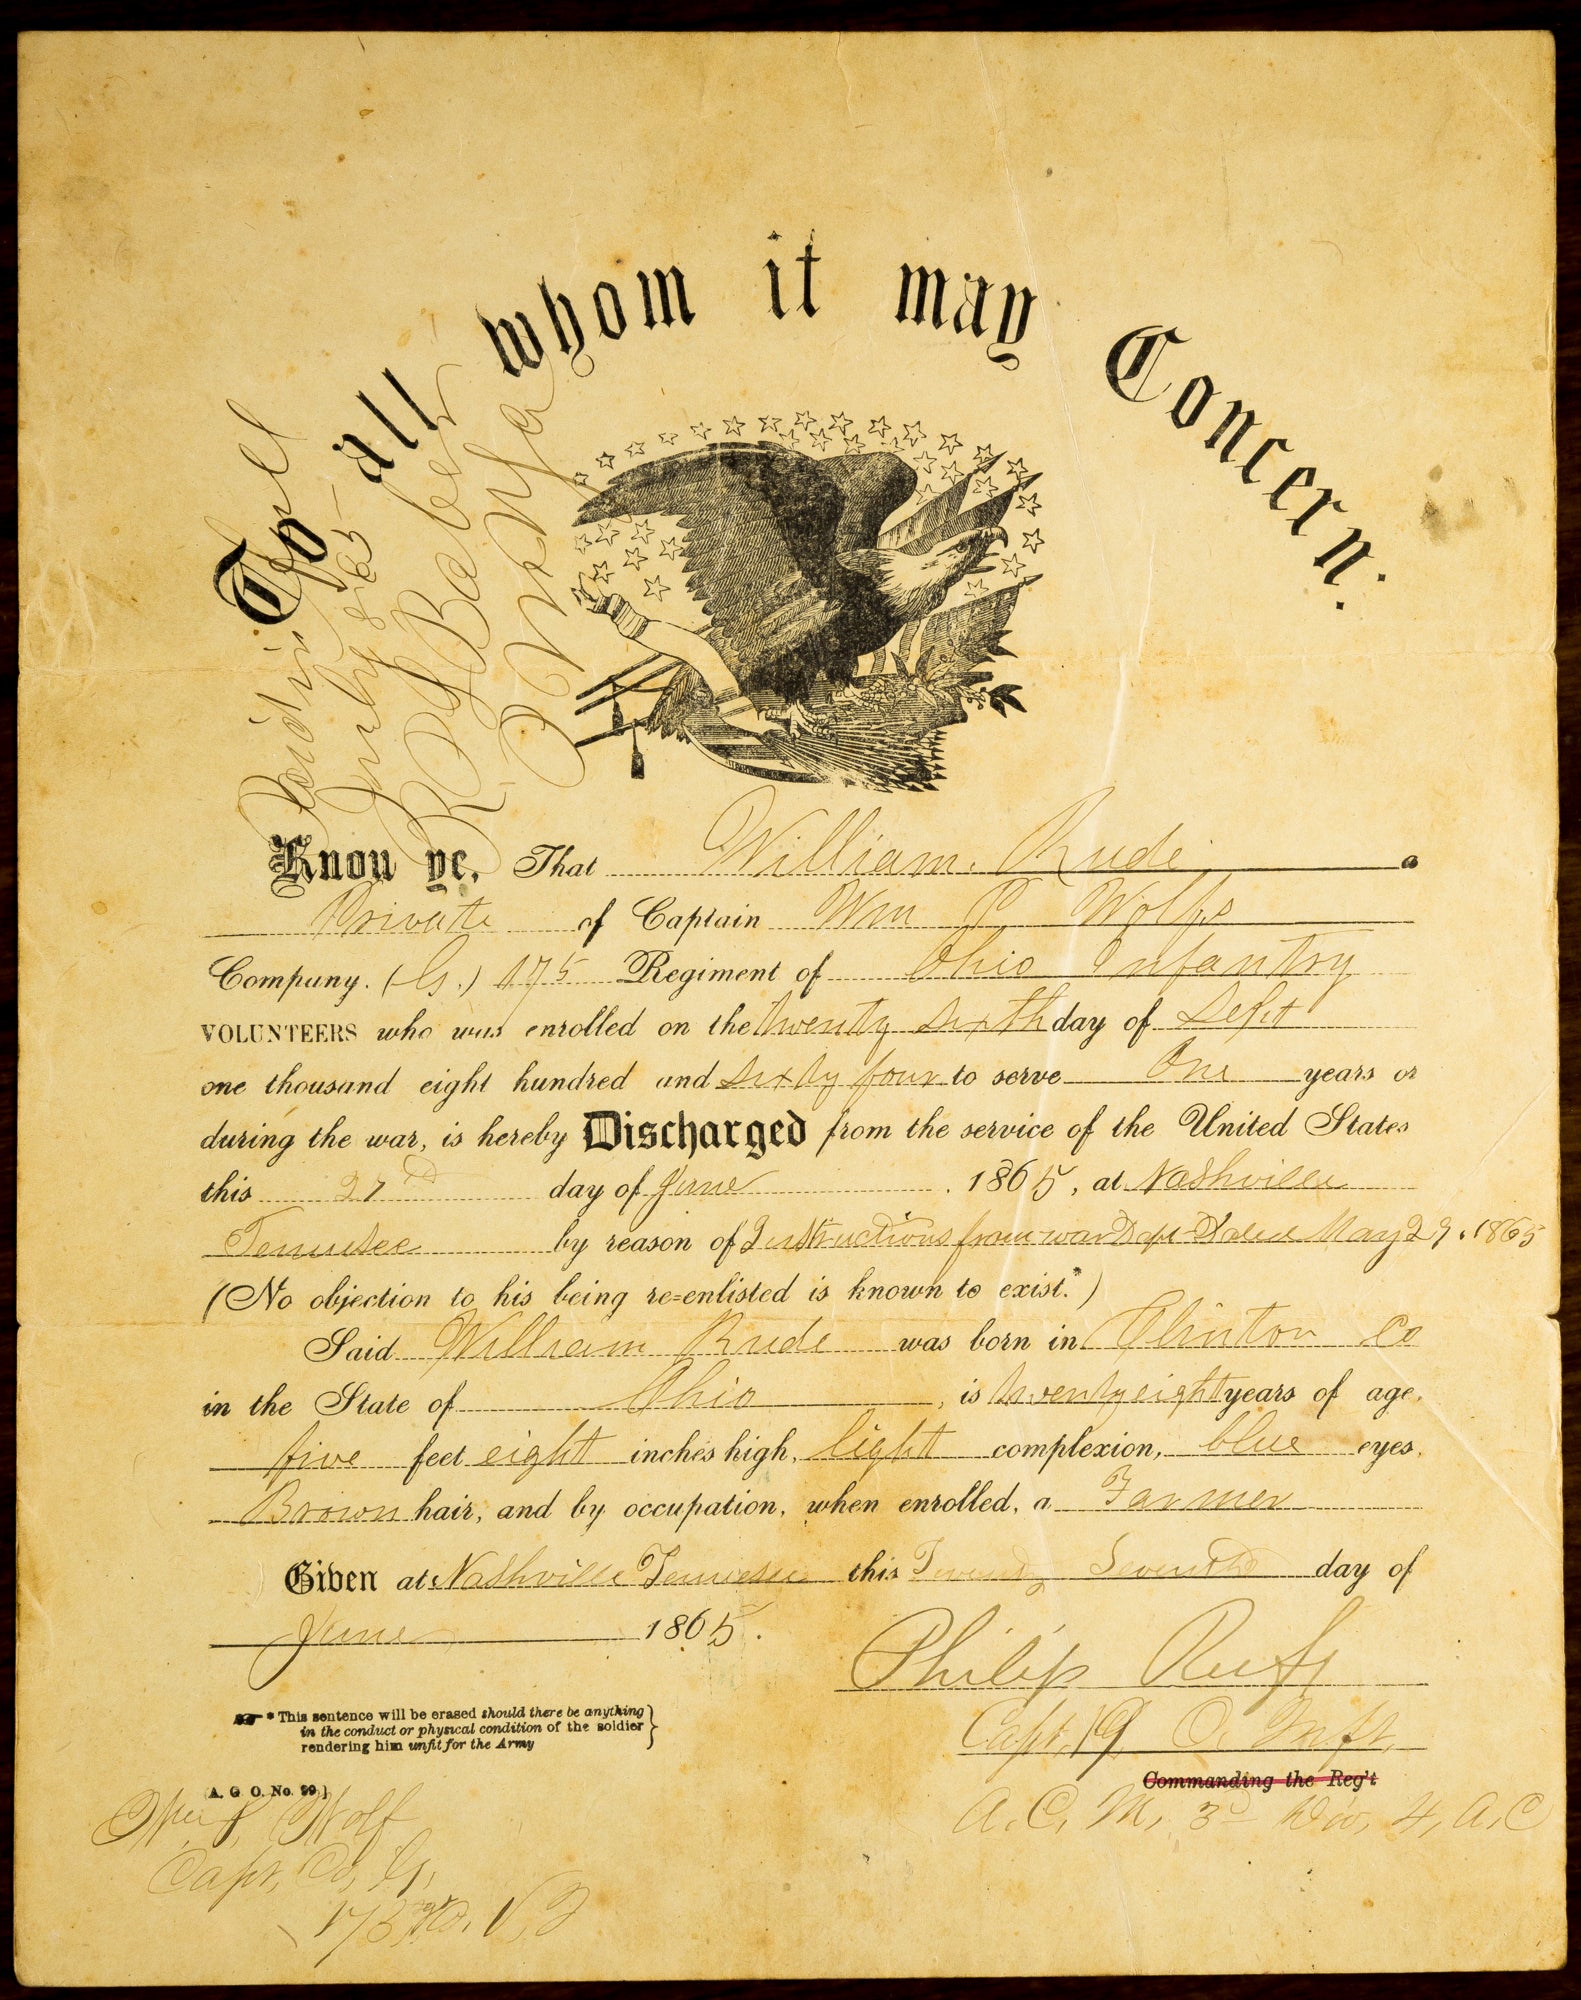 To all whom it may Concern.
Paid in full
July 1865
Know ye, That William Rude a
Private of Captain Wm P Wolfe
Company, (G.) 175 Regiment of Ohio Infantry
VOLUNTEERS who was enrolled on the twenty sixth day of Sept
one thousand eight hundred and sixty four to serve One years or
during the war, is hereby Discharged from the service of the United States
this 27 day of June 1865, at Nashville
Tennesee by reason of Instructions from war Dept Dated May 29, 1865
(No objection to his being re-enlisted is known to exist.*)
Said William Rude was born in Clinton Co
in the State of Ohio, is twenty eight years of age,
five feet eight inches high, light complexion, blue eyes,
Brown hair, and by occupation, when enrolled, a Farmer
Given at Nashville Tennesee this Twenty Seventh day of
June 1865.
Philip Ruffy
Capt, 19 O. Inft,
Commanding the Reg't
A. C. M. 3d Div, 4, A. C
* This sentence will be erased should there be anything
in the conduct or physical condition of the soldier
rendering him unfit for the Army
[A. G. O. No. 99.]
Wm P. Wolf
Capt, Co, G,